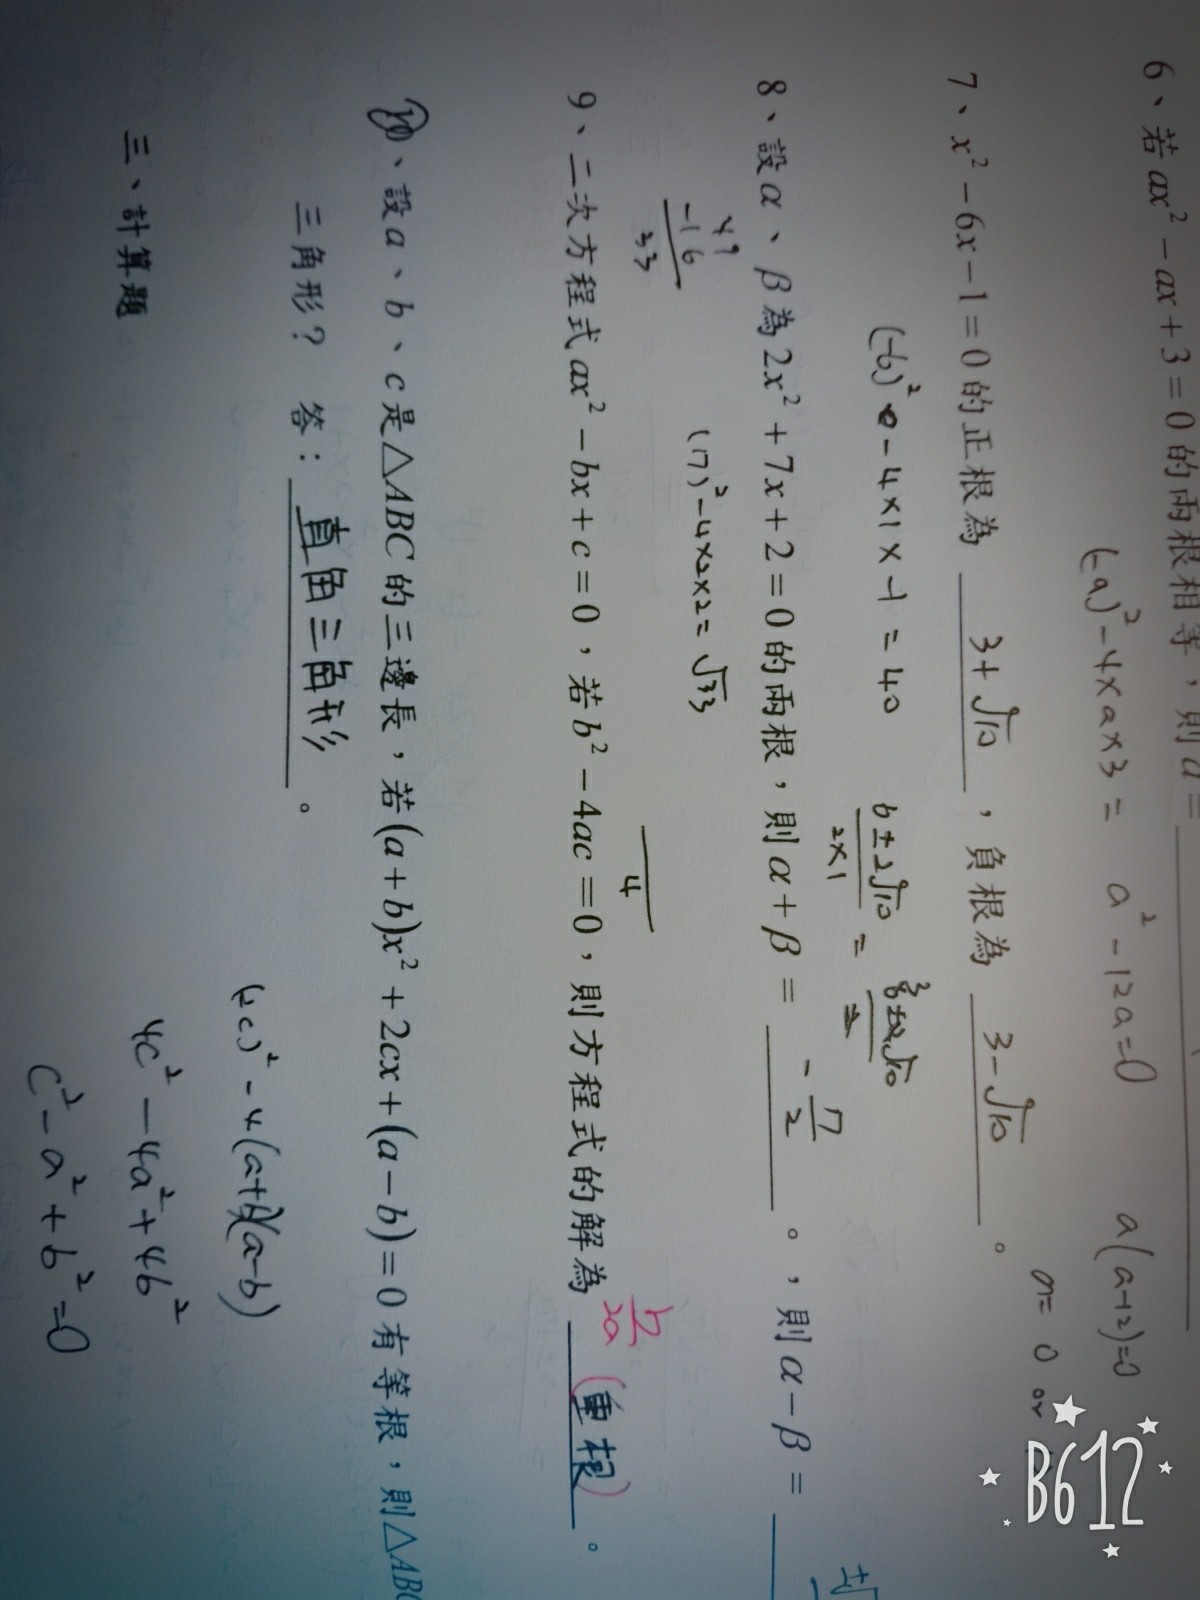 6、若ax² − ax + 3 = 0的兩根相等，則a =
(-a)² - 4×a×3 = a² - 12a = 0 a(a-12)=0
a = 0 or
7、x² − 6x − 1 = 0的正根為 3+√10 ，負根為 3-√10 。
(-6)² - 4×1×-1 = 40
6±2√10 / 2×1 =
8、設α、β為2x² + 7x + 2 = 0的兩根，則α + β = -7/2 。，則α − β =
49
-16
33
(17)² - 4×2×2 = √33
4
9、二次方程式ax² − bx + c = 0，若b² − 4ac = 0，則方程式的解為 b/2a (重根) 。
10、設a、b、c是△ABC的三邊長，若(a + b)x² + 2cx + (a − b) = 0有等根，則△ABC
三角形？ 答： 直角三角形 。
(2c)² - 4(a+b)(a-b)
4c² - 4a² + 4b²
c² - a² + b² = 0
三、計算題
B612